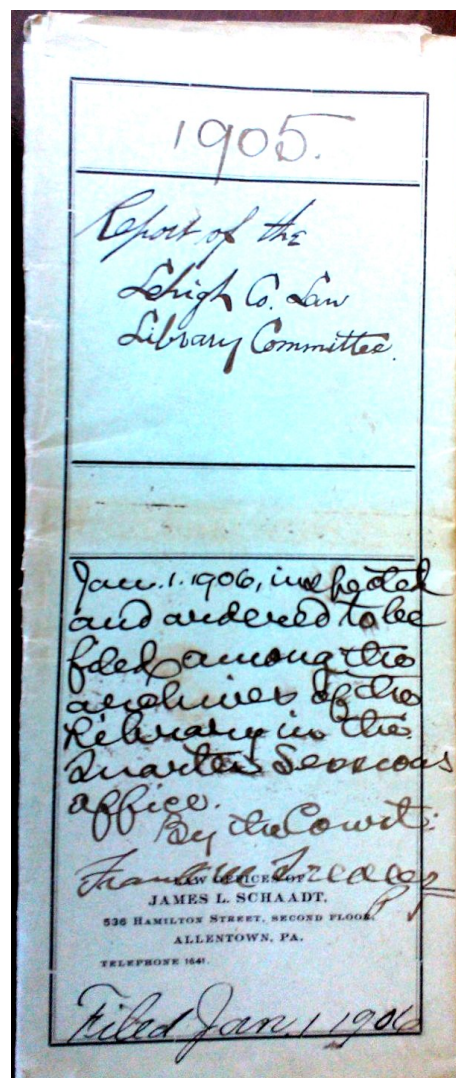 1905.
Report of the
Lehigh Co. Law
Library Committee.
Jan. 1. 1906, inspected
and ordered to be
filed among the
archives of the
Library in the
Quarter Sessions
office.
By the Court:
Frank M. Trexler
P J
LAW OFFICES OF
JAMES L. SCHAADT,
536 HAMILTON STREET, SECOND FLOOR,
ALLENTOWN, PA.
TELEPHONE 1641.
Filed Jan. 1 1906